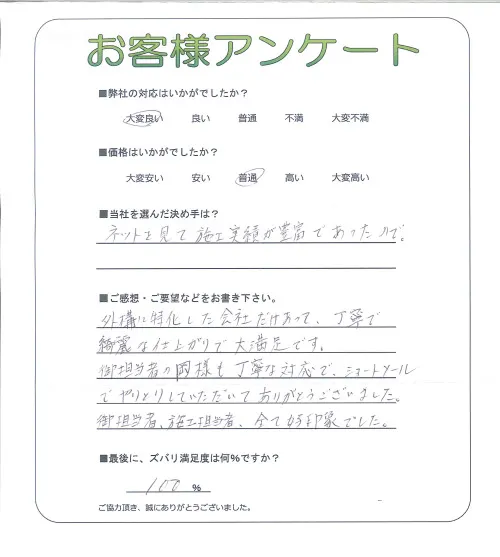 お客様アンケート
■弊社の対応はいかがでしたか？
大変良い 良い 普通 不満 大変不満
■価格はいかがでしたか？
大変安い 安い 普通 高い 大変高い
■当社を選んだ決め手は？
ネットを見て施工実績が豊富であったので。
■ご感想・ご要望などをお書き下さい。
外構に特化した会社だけあって、丁寧で
綺麗な仕上がりで大満足です。
御担当者の岡様も丁寧な対応で、ショートメール
でやりとりしていただいてありがとうございました。
御担当者、施工担当者、全て好印象でした。
■最後に、ズバリ満足度は何%ですか？
100 %
ご協力頂き、誠にありがとうございました。